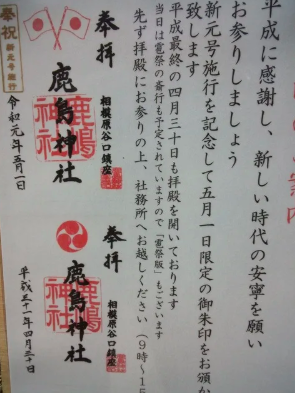 平成に感謝し、新しい時代の安寧を願い
お参りしましょう
新元号施行を記念して五月一日限定の御朱印をお頒か
致します
平成最終の四月三十日も拝殿を開いております
当日は竜祭の斎行も予定されていますので「竜祭版」もございます
先ず拝殿にお参りの上、社務所へお越しください(9時〜15
奉祝
新元号施行
奉拝
相模原谷口鎮座
鹿島神社
鹿嶋神社
令和元年五月一日
奉拝
相模原谷口鎮座
鹿島神社
鹿嶋神社
平成三十一年四月三十日